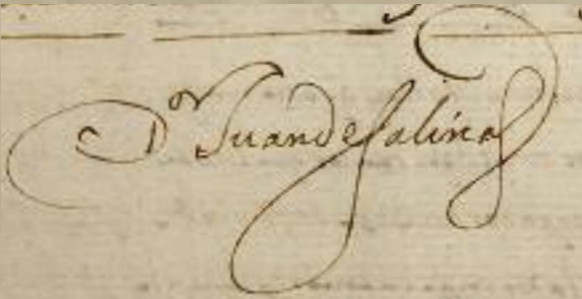 Dor Juan de Salinas